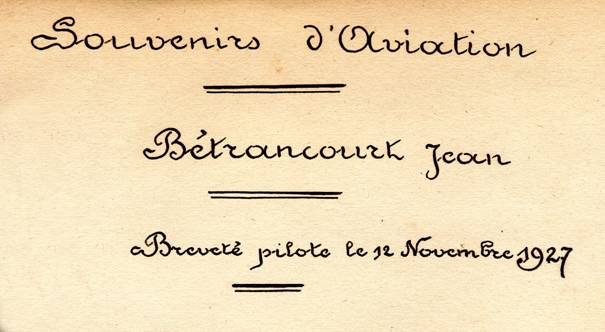 Souvenirs d'Aviation
Bétrancourt Jean
Breveté pilote le 12 Novembre 1927